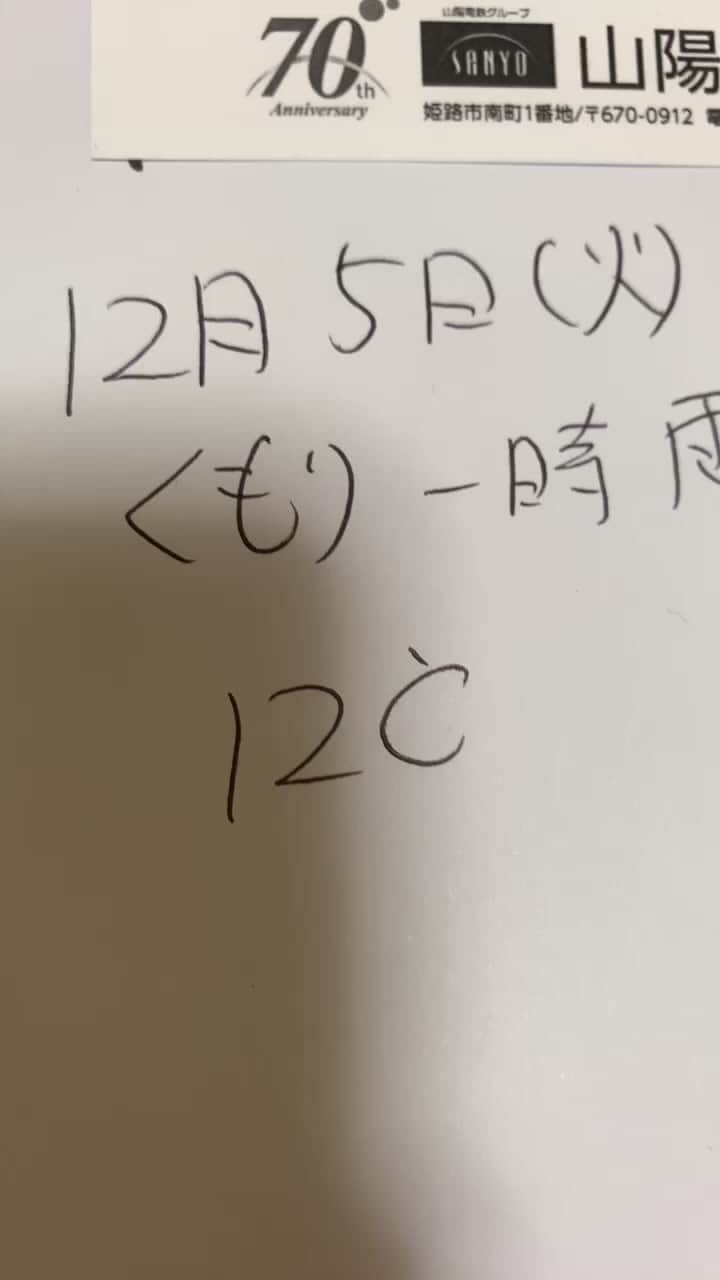 山陽電鉄グループ
70th Anniversary
SANYO 山陽
姫路市南町1番地/〒670-0912 電
12月5日(火)
くもり 一時 雨
12℃